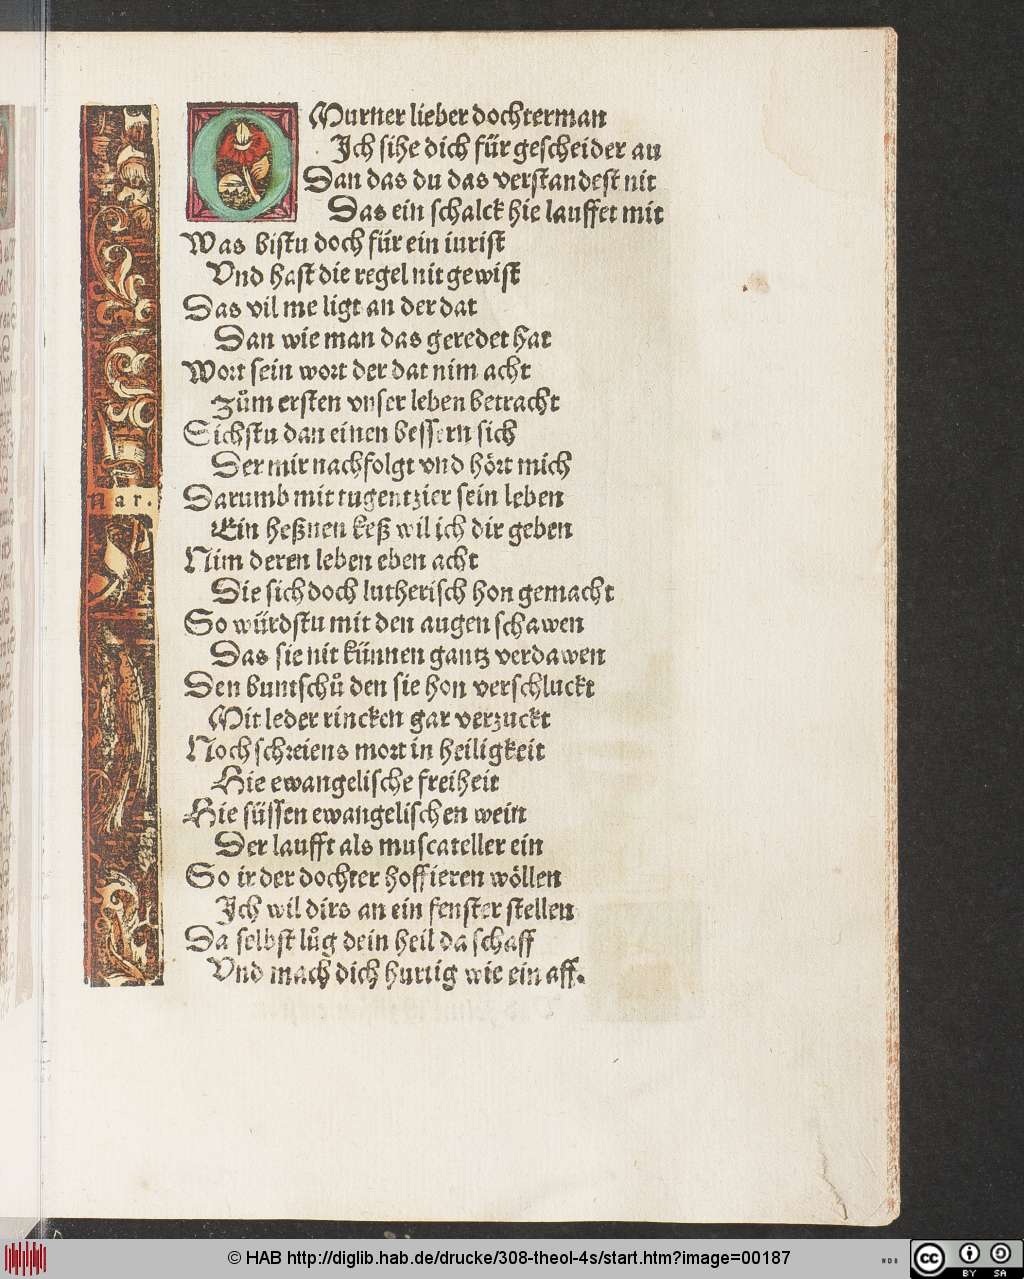 O Murner lieber dochterman
Ich sihe dich für gescheider an
Dan das du das verstandest nit
Das ein schalck hie lauffet mit
Was bistu doch für ein iurist
Vnd hast die regel nit gewist
Das vil me ligt an der dat
Dan wie man das geredet hat
Wort sein wort der dat nim acht
Zům ersten vnser leben betracht
Sichstu dan einen bessern sich
Der mir nachfolgt vnd hört mich
Nar.
Darumb mit tugentzier sein leben
Ein heßnen keß wil ich dir geben
Nim deren leben eben acht
Die sich doch lutherisch hon gemacht
So würdstu mit den augen schawen
Das sie nit künnen gantz verdawen
Den buntschů den sie hon verschluckt
Mit leder rincken gar verzuckt
Noch schreiens mort in heiligkeit
Hie ewangelische freiheit
Hie süssen ewangelischen wein
Der laufft als muscateller ein
So ir der dochter hoffieren wöllen
Ich wil dirs an ein fenster stellen
Da selbst lůg dein heil da schaff
Vnd mach dich hurtig wie ein aff.
© HAB http://diglib.hab.de/drucke/308-theol-4s/start.htm?image=00187
WDB
cc BY SA